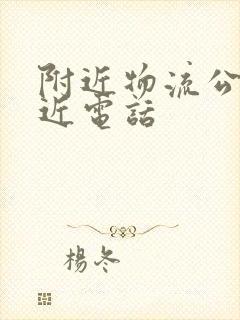 附近物流公
近電話
楊冬